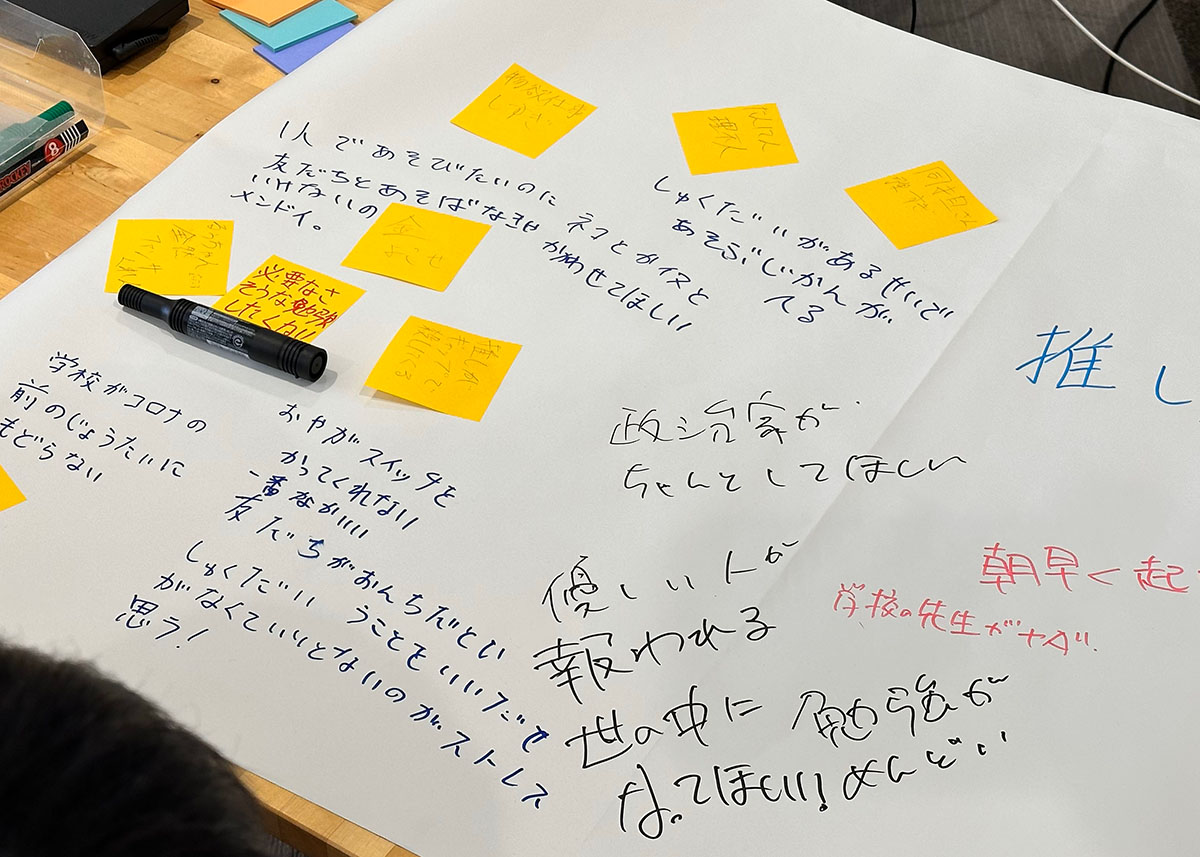 物欲仕事
しゅぎ
なんでん
理不人
同担さん
1人であそびたいのに
友だちとあそばな
いけないの
メンドイ。
ネコとかイヌと
かわせてほしい
しゅくだいがあるせいで
あそぶじかんが、
へる
金
よこせ
必要なさ
そうな勉強
したくない
推しが
学校がコロナの
前のじょうたいに
もどらない
おやがスイッチを
かってくれない
一番なかいい
友だちがおんちだとい
うことをいいだせ
ないのがストレス
しゅくだい
がなくていいと
思う！
政治家が
ちゃんとしてほしい
推し
朝早く起
学校の先生がヤダ
優しい人が
報われる
世の中に
なってほしい！
勉強が
めんどい